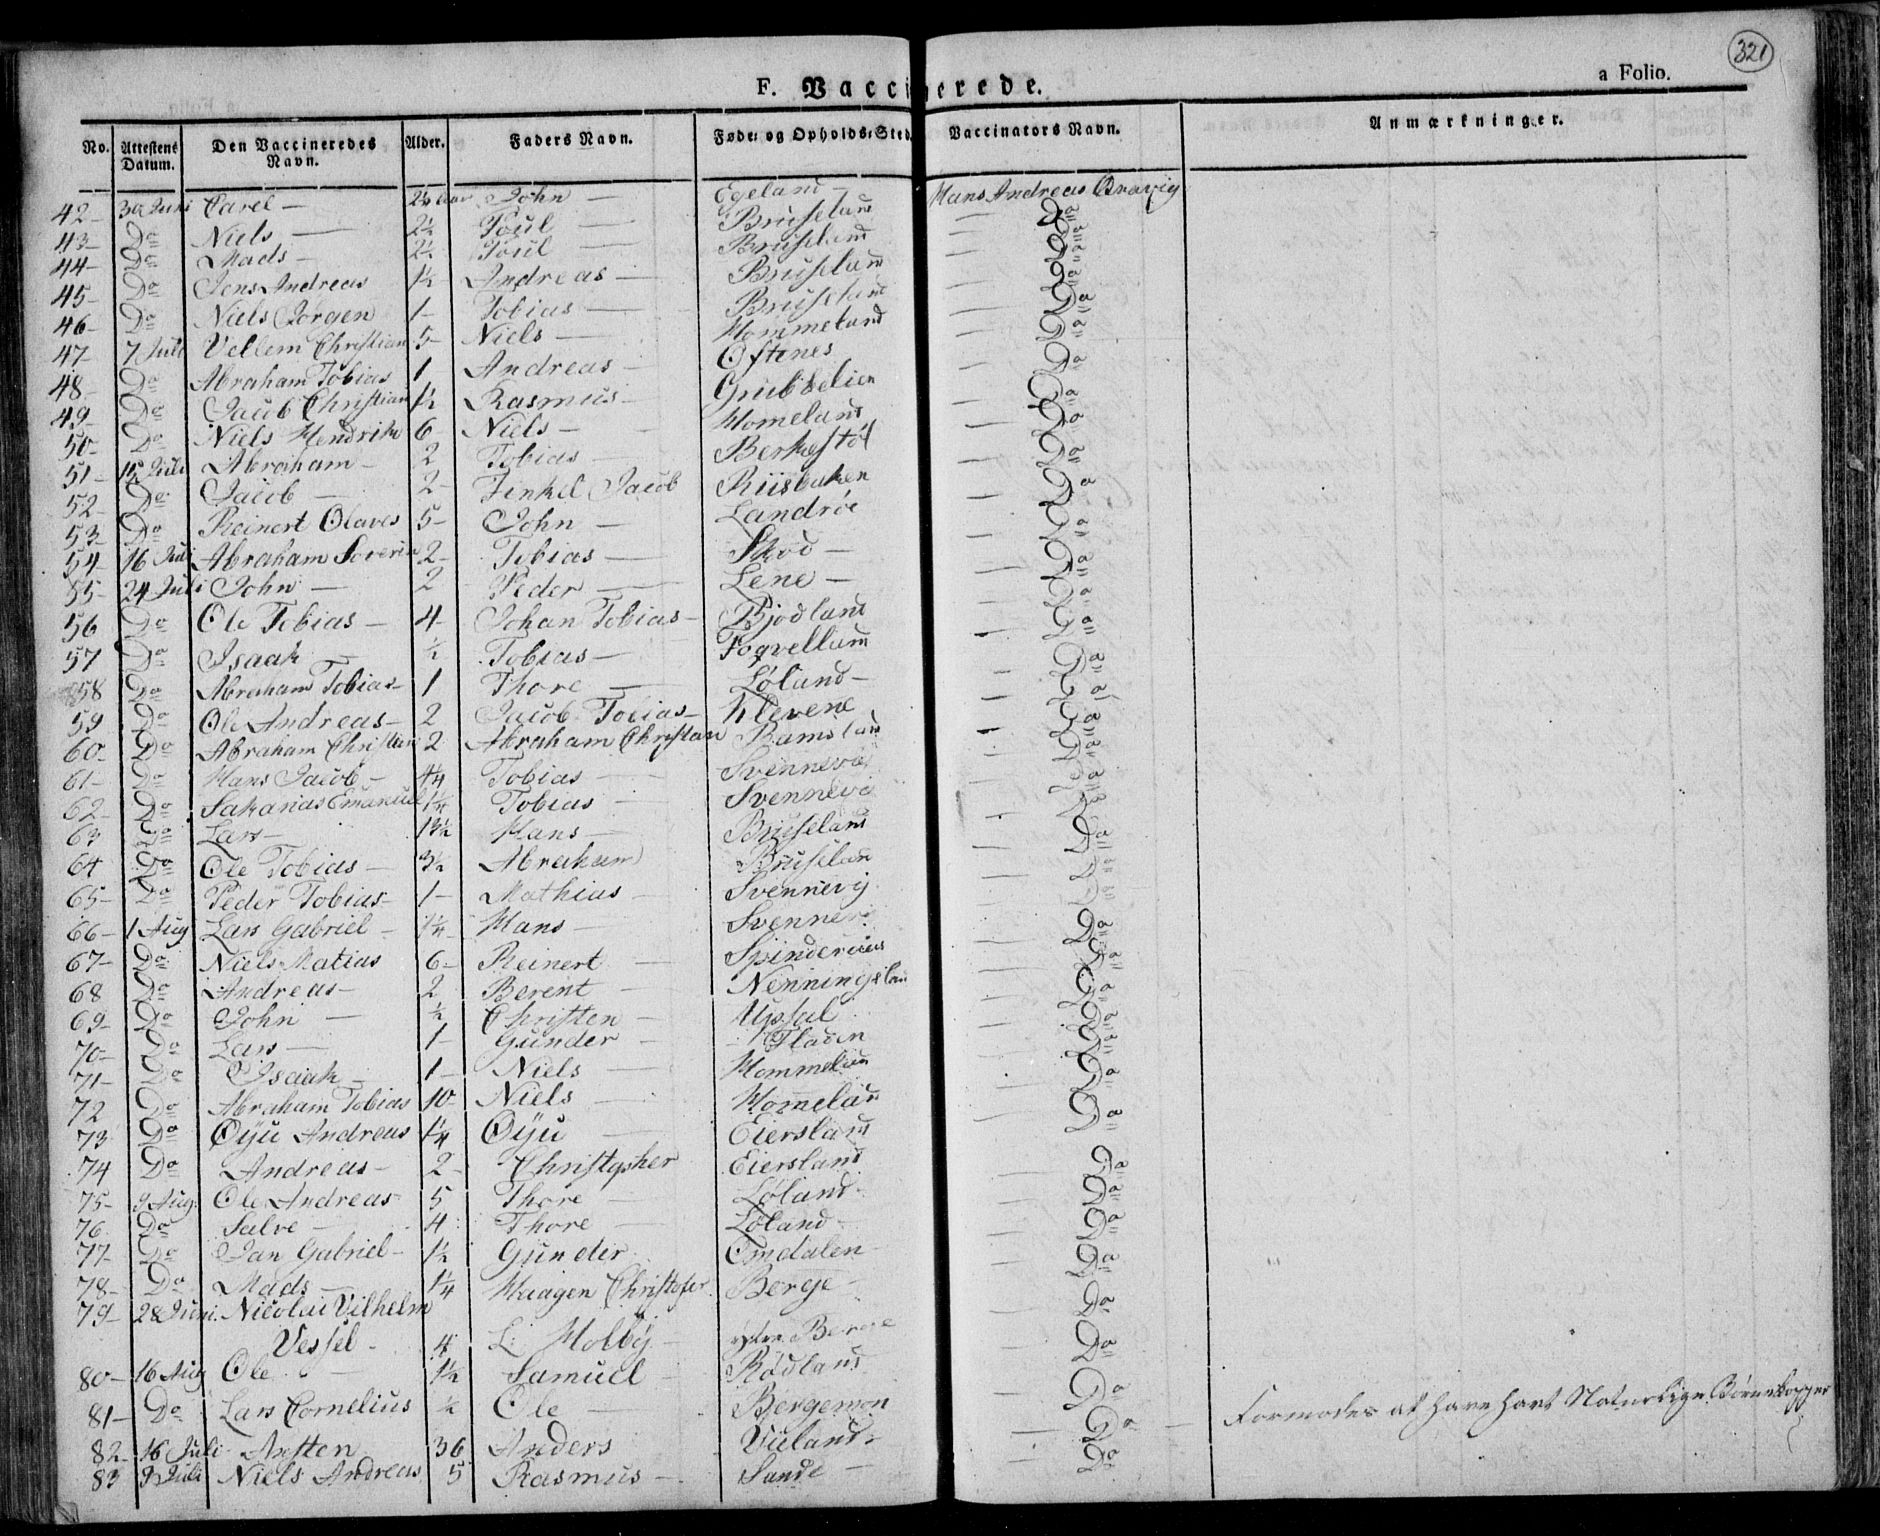 321
F. Vaccinerede.
a Folio.
No. Attestens Datum. Den Vaccineredes Navn. Alder. Faders Navn. Føde- og Opholds-Sted Vaccinators Navn. Anmærkninger.
42- 30 Juni Carel - John - Egeland - Hans Andreas Bravig
43- Do Niels - 2½ Poul - Bruseland - Do
44- Do Mads - 2½ Poul - Bruseland - Do
45- Do Jens Andreas 1½ Andreas - Bruseland - Do
46- Do Niels Jørgen 1- Tobias - Bruseland - Do
47- 7 Juli Vellem Christian 5- Niels - Hommeland - Do
48- Do Abraham Tobias 1 Andreas - Oftenes - Do
49- Do Jacob Christian 1½ Rasmus - Grubbelien - Do
50- Do Niels Hendrik 6- Niels - Homeland - Do
51- 15 Juli Abraham - 2 Tobias Berkestøl - Do
52- Do Jacob - 2- Jacob Riisbakken - Do
53- Do Reinert Olaves 5- John - Landrøe - Do
54- 16 Juli Abraham Soverin 2- Tobias - - Do
55- 24 Juli John - 2 Peder - Lene - - Do
56 Do Ole Tobias - 4- Johan Tobias - Bjodland - Do
57 Do Isaak - ½ Tobias - - Do
58 Do Abraham Tobias - 1 Thore - Løland - - Do
59 Do Ole Andreas - 2 Jacob Tobias - Klevene - Do
60- Do Abraham Christian 2 Abraham Christian Ramsland - Do
61- Do Hans Jacob - Tobias - - Do
62- Do Sakarias Emanuel 1¼ Tobias - - Do
63 Do Lars - 13½ Hans - Bruseland - Do
64 Do Ole Tobias - 3½ Abraham Bruseland - Do
65- Do Peder Tobias - 1- Mathias - Svennevig - Do
66- 1 Aug Lars Gabriel - 1¼- Hans - - Do
67- Do Niels Matias 6- Reinert - - Do
68 Do Andreas - 2 Berent - - Do
69- Do John - ½ Christen - Upsal - Do
70- Do Lars - 1- Gunder - - Do
71- Do Isaak - 1- Niels - Hommelan - Do
72 Do Abraham Tobias 10- Niels - Homelan - Do
73 Do Øyu Andreas 1¼ Øyu - Eiersland - Do
74 Do Andreas - 2- Christopher Eiersland - Do
75- 9 Aug. Ole Andreas - 5 Thore - Løland - Do
76 Do Salve - 4 Thore - Løland - Do
77- Do Jan Gabriel - 1½ Gunder Omdalen - Do
78- Do Mads - 1¼ Haagen Christofer Berge - Do
79- 28 Juni Nicolai Vilhelm Do
Vessel - 4 L: Holbÿ - Berge - Do
80- 16 Aug Ole - 1½ Samuel - Rødland - Do
81- Do Lars Cornelius ½ Ole - Bergemon Do - Formodes at have havt Naturlige Børnekopper
82- 16 Juli Ansten 36 Anders Viiland - Do
83 9 Juli Niels Andreas 5 Rasmus - Sande - - Do